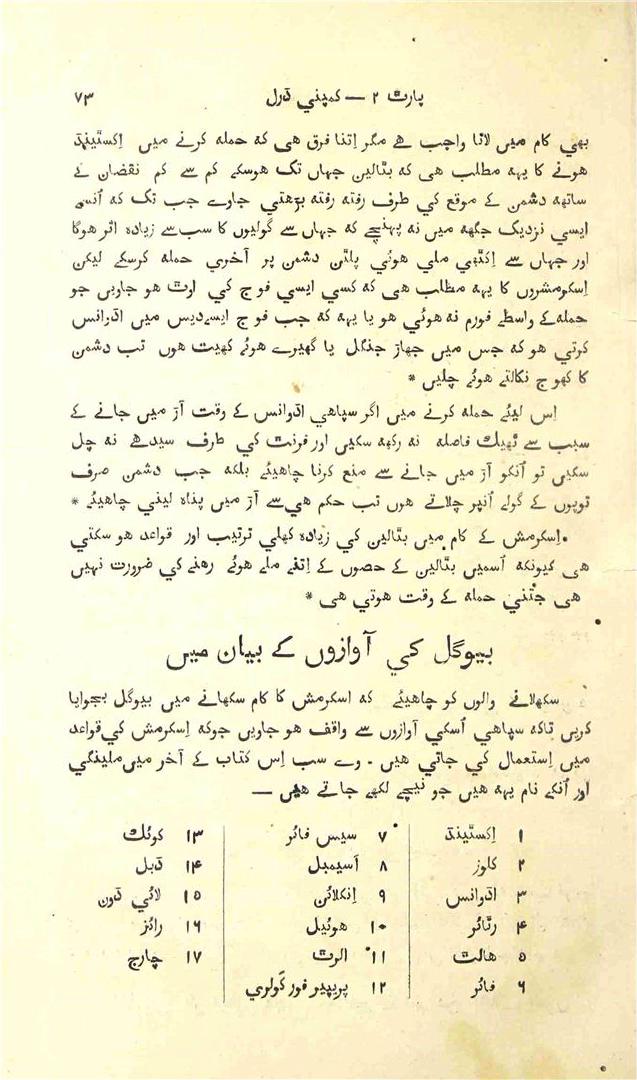 پارٹ ۲ — کمپني ڈرل ۷۳
بھي کام میں لانا واجب ھے مگر اِتنا فرق ھی کہ حملہ کرنے میں اِکسٹینڈ
ھونے کا یہہ مطلب ھی کہ بٹالین جہاں تک ھوسکے کم سے کم نقصان کے
ساتھہ دشمن کے موقع کي طرف رفتہ رفتہ بڑھتي جاوے جب تک کہ اُنسے
ایسي نزدیک جگھہ میں نہ پہنچے کہ جہاں سے گولیوں کا سب سے زیادہ اثر ھوگا
اور جہاں سے اِکٹھي ملي ھوئي پلٹن دشمن پر آخري حملہ کرسکے لیکن
اِسکرمشروں کا یہہ مطلب ھی کہ کسي ایسي فوج کي اوٹ ھو جاویں جو
حملہ کے واسطے فورم نہ ھوئي ھو یا یہہ کہ جب فوج ایسے دیس میں اڈوانس
کرتي ھو کہ جس میں جھاڑ جنگل یا گھیرے ھوئے کھیت ھوں تب دشمن
کا کھوج نکالتے ھوئے چلیں *
اِس لیئے حملہ کرنے میں اگر سپاھي اڈوانس کے وقت آڑ میں جانے کے
سبب سے ٹھیک فاصلہ نہ رکھہ سکیں اور فرنٹ کي طرف سیدھے نہ چل
سکیں تو اُنکو آڑ میں جانے سے منع کرنا چاھیئے بلکہ جب دشمن صرف
توپوں کے گولے اُنپر چلاتے ھوں تب حکم ھي سے آڑ میں پناہ لیني چاھیئے *
اِسکرمش کے کام میں بٹالین کي زیادہ کھلي ترتیب اور قواعد ھو سکتي
ھی کیونکہ اُسمیں بٹالین کے حصوں کے اِتنے ملے ھوئے رھنے کي ضرورت نہیں
ھی جتني حملہ کے وقت ھوتي ھی *
بیوگل کي آوازوں کے بیان میں
سکھلانے والوں کو چاھیئے کہ اسکرمش کا کام سکھانے میں بیوگل بجوایا
کریں تاکہ سپاھي اُسکي آوازوں سے واقف ھو جاویں جوکہ اِسکرمش کي قواعد
میں اِستعمال کي جاتي ھیں - وے سب اِس کتاب کے آخر میں ملینگي
اور اُنکے نام یہہ ھیں جو نیچے لکھے جاتے ھیں —
۱ اِکسٹینڈ
۲ کلوز
۳ اڈوانس
۴ رٹائر
۵ ھالٹ
۶ فائر
۷ سیس فائر
۸ اَسیمبل
۹ اِنکلائن
۱۰ ھوئیل
۱۱ الرٹ
۱۲ پریپیر فور کولري
۱۳ کوئک
۱۴ ڈبل
۱۵ لائي ڈون
۱۶ رائز
۱۷ چارج